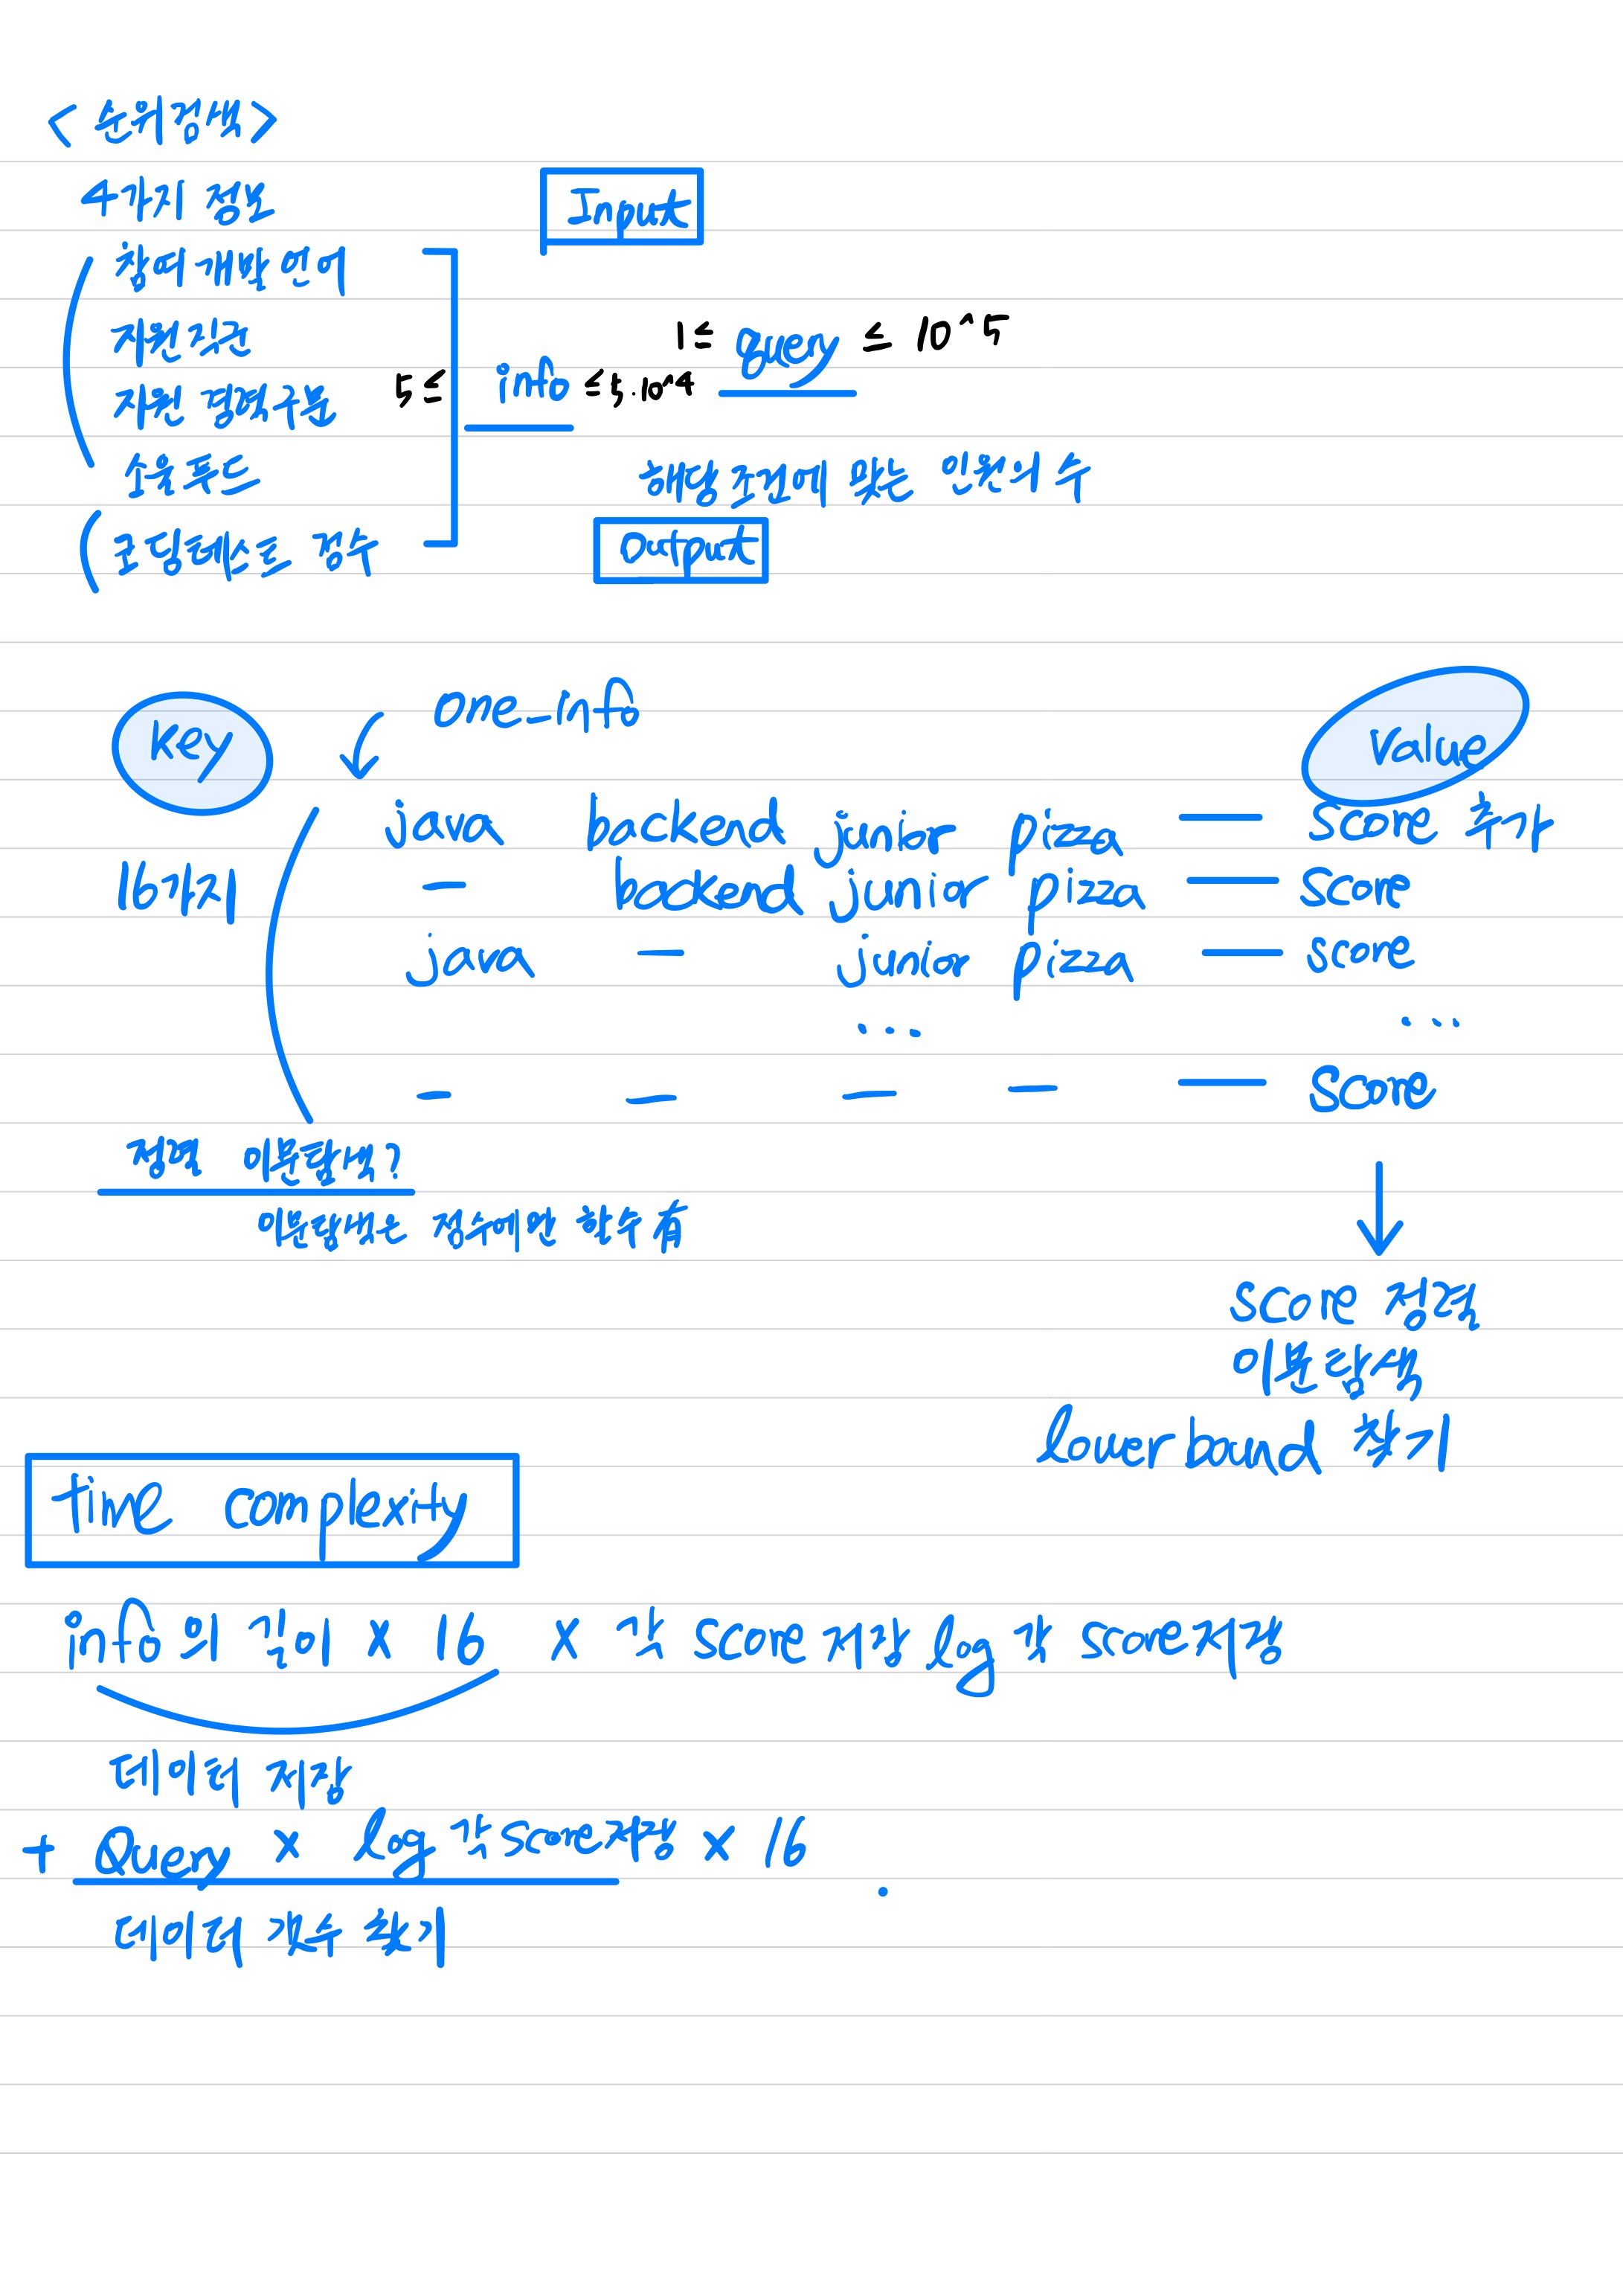 <순위검색>
4가지 정보
Input
참여 개발언어
지원 직군
지원 경력구분
소울푸드
코딩테스트 점수
5 ≤ info ≤ 5·10^4
1 ≤ query ≤ 10^5
해당 조건에 맞는 인원의 수
Output
key
one_info
value
16가지
java backed junior pizza — score 추가
- backend junior pizza — score
java - junior pizza — score
... ...
- - - - — score
정렬 이분탐색?
이분탐색은 점수에만 할 수 有
↓
score 정렬
이분탐색
lower bound 찾기
time complexity
info의 길이 x 16 x 각 score저장 log 각 score저장
데이터 저장
+ Query x log 각 score저장 x 16
데이터 갯수 찾기